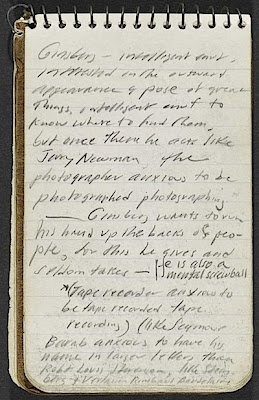 Ginsberg — intelligent enuf,
interested in the outward
appearance & pose of great
things, intelligent enuf to
know where to find them,
but once there he acts like
Jerry Newman the
photographer anxious to be
photographed photographing
— Ginsberg wants to run
his hand up the backs of peo-
ple, for this he gives and
seldom takes — He is also a
mental screwball
*(Tape recorder anxious to
be tape recorded tape
recording) (like Seymour
Barab anxious to have his
name in larger letters than
Robt Louis Stevenson, like Steven-
& Verlaine Rimbaud Baudelaire